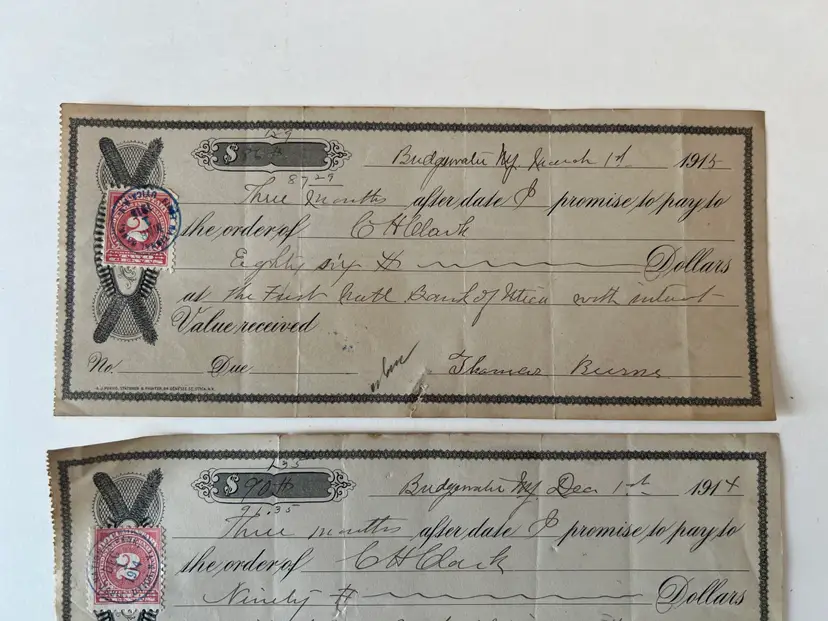 1 29
$ 86 #
87 29
Bridgewater NY. March 1st 1915
Three months after date I promise to pay to
the order of C H Clark
Eighty six # Dollars
at the First Natl Bank of Utica with interest
Value received
No. Due
Thomas Burns
1 35
$ 90 #
91.35
Bridgewater NY Dec 1st 1914
Three months after date I promise to pay to
the order of C H Clark
Ninety # Dollars